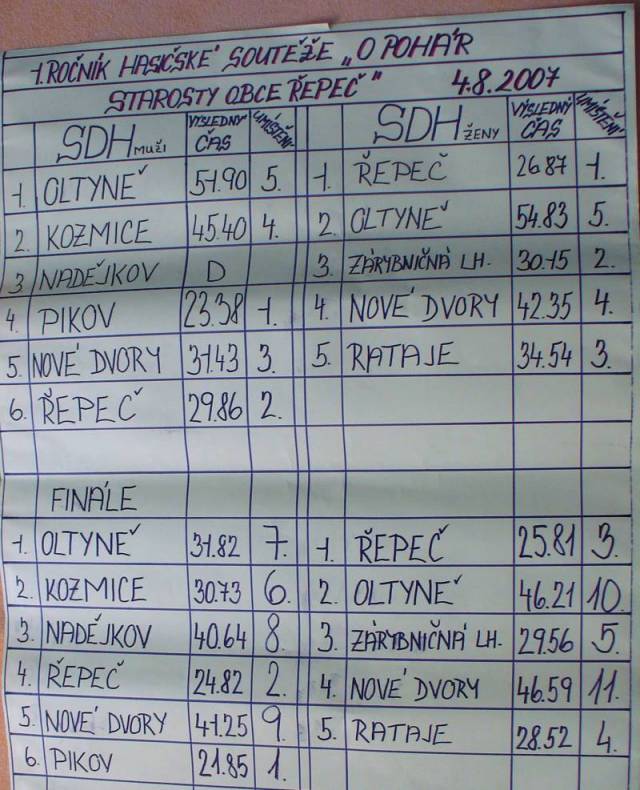 1. ROČNÍK HASIČSKÉ SOUTĚŽE „O POHÁR
STAROSTY OBCE ŘEPEČ" 4.8.2007
SDH MUŽI VÝSLEDNÝ ČAS UMÍSTĚNÍ SDH ŽENY VÝSLEDNÝ ČAS UMÍSTĚNÍ
1. OLTYNĚ 51.90 5. 1. ŘEPEČ 26.87 1.
2. KOZMICE 45.40 4. 2. OLTYNĚ 54.83 5.
3 NADĚJKOV D 3. ZÁRYBNIČNÁ LH. 30.15 2.
4. PIKOV 23.38 1. 4. NOVÉ DVORY 42.35 4.
5. NOVÉ DVORY 31.43 3. 5. RATAJE 34.54 3.
6. ŘEPEČ 29.86 2.
FINÁLE
1. OLTYNĚ 31.82 7. 1. ŘEPEČ 25.81 3.
2. KOZMICE 30.73 6. 2. OLTYNĚ 46.21 10.
3. NADĚJKOV 40.64 8. 3. ZÁRYBNIČNÁ LH. 29.56 5.
4. ŘEPEČ 24.82 2. 4. NOVÉ DVORY 46.59 11.
5. NOVÉ DVORY 41.25 9. 5. RATAJE 28.52 4.
6. PIKOV 21.85 1.